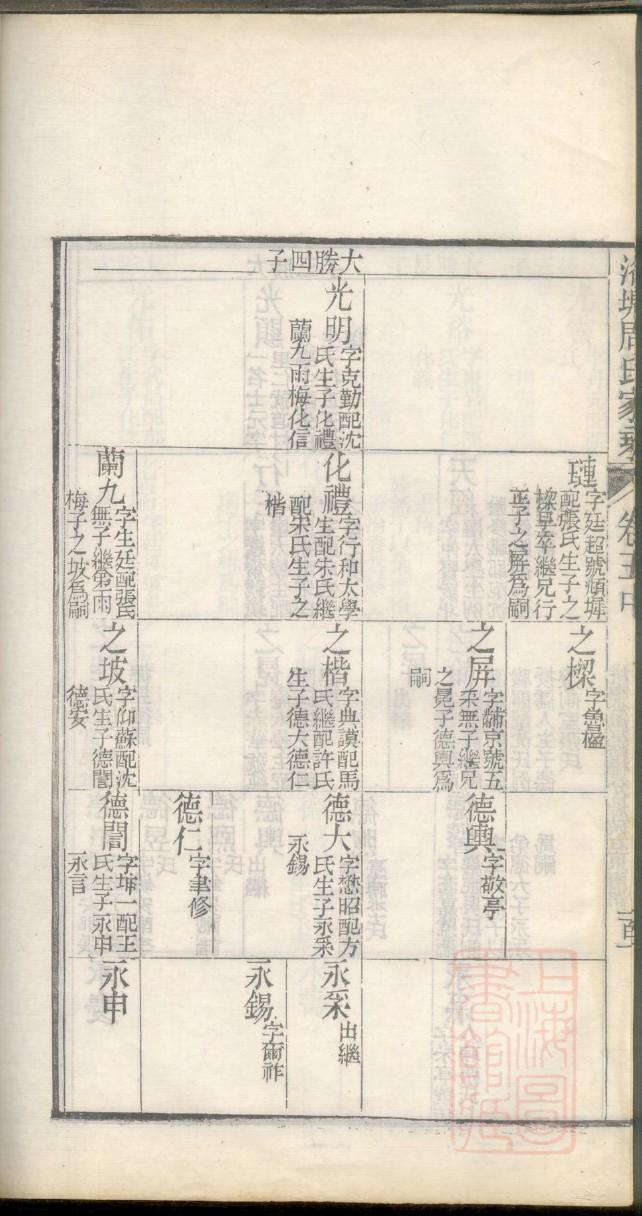 周氏家
卷五中
大勝四子
光明
字克勤配沈
氏生子化禮
蘭九雨梅化信
璉
字廷超號
配張氏生子之
樑早卒繼兄行
正子之屏為嗣
化禮
字行和太學
生配朱氏繼
配宋氏生子之
楷
蘭九
字生廷配張氏
無子繼弟雨
梅子之坡為嗣
之樑
字魯楹
之屏
字黼京號五
采無子繼兄
之晃子德輿為
嗣
之楷
字典謨配馬
氏繼配許氏
生子德大德仁
之坡
字仰蘇配沈
氏生子德誾
德安
德輿
字敬亭
德大
字懋昭配方
氏生子永采
永錫
德仁
字聿修
德誾
字坤一配王
氏生子永申
永言
永采
出繼
永錫
字爾祚
永申
上海圖書館藏